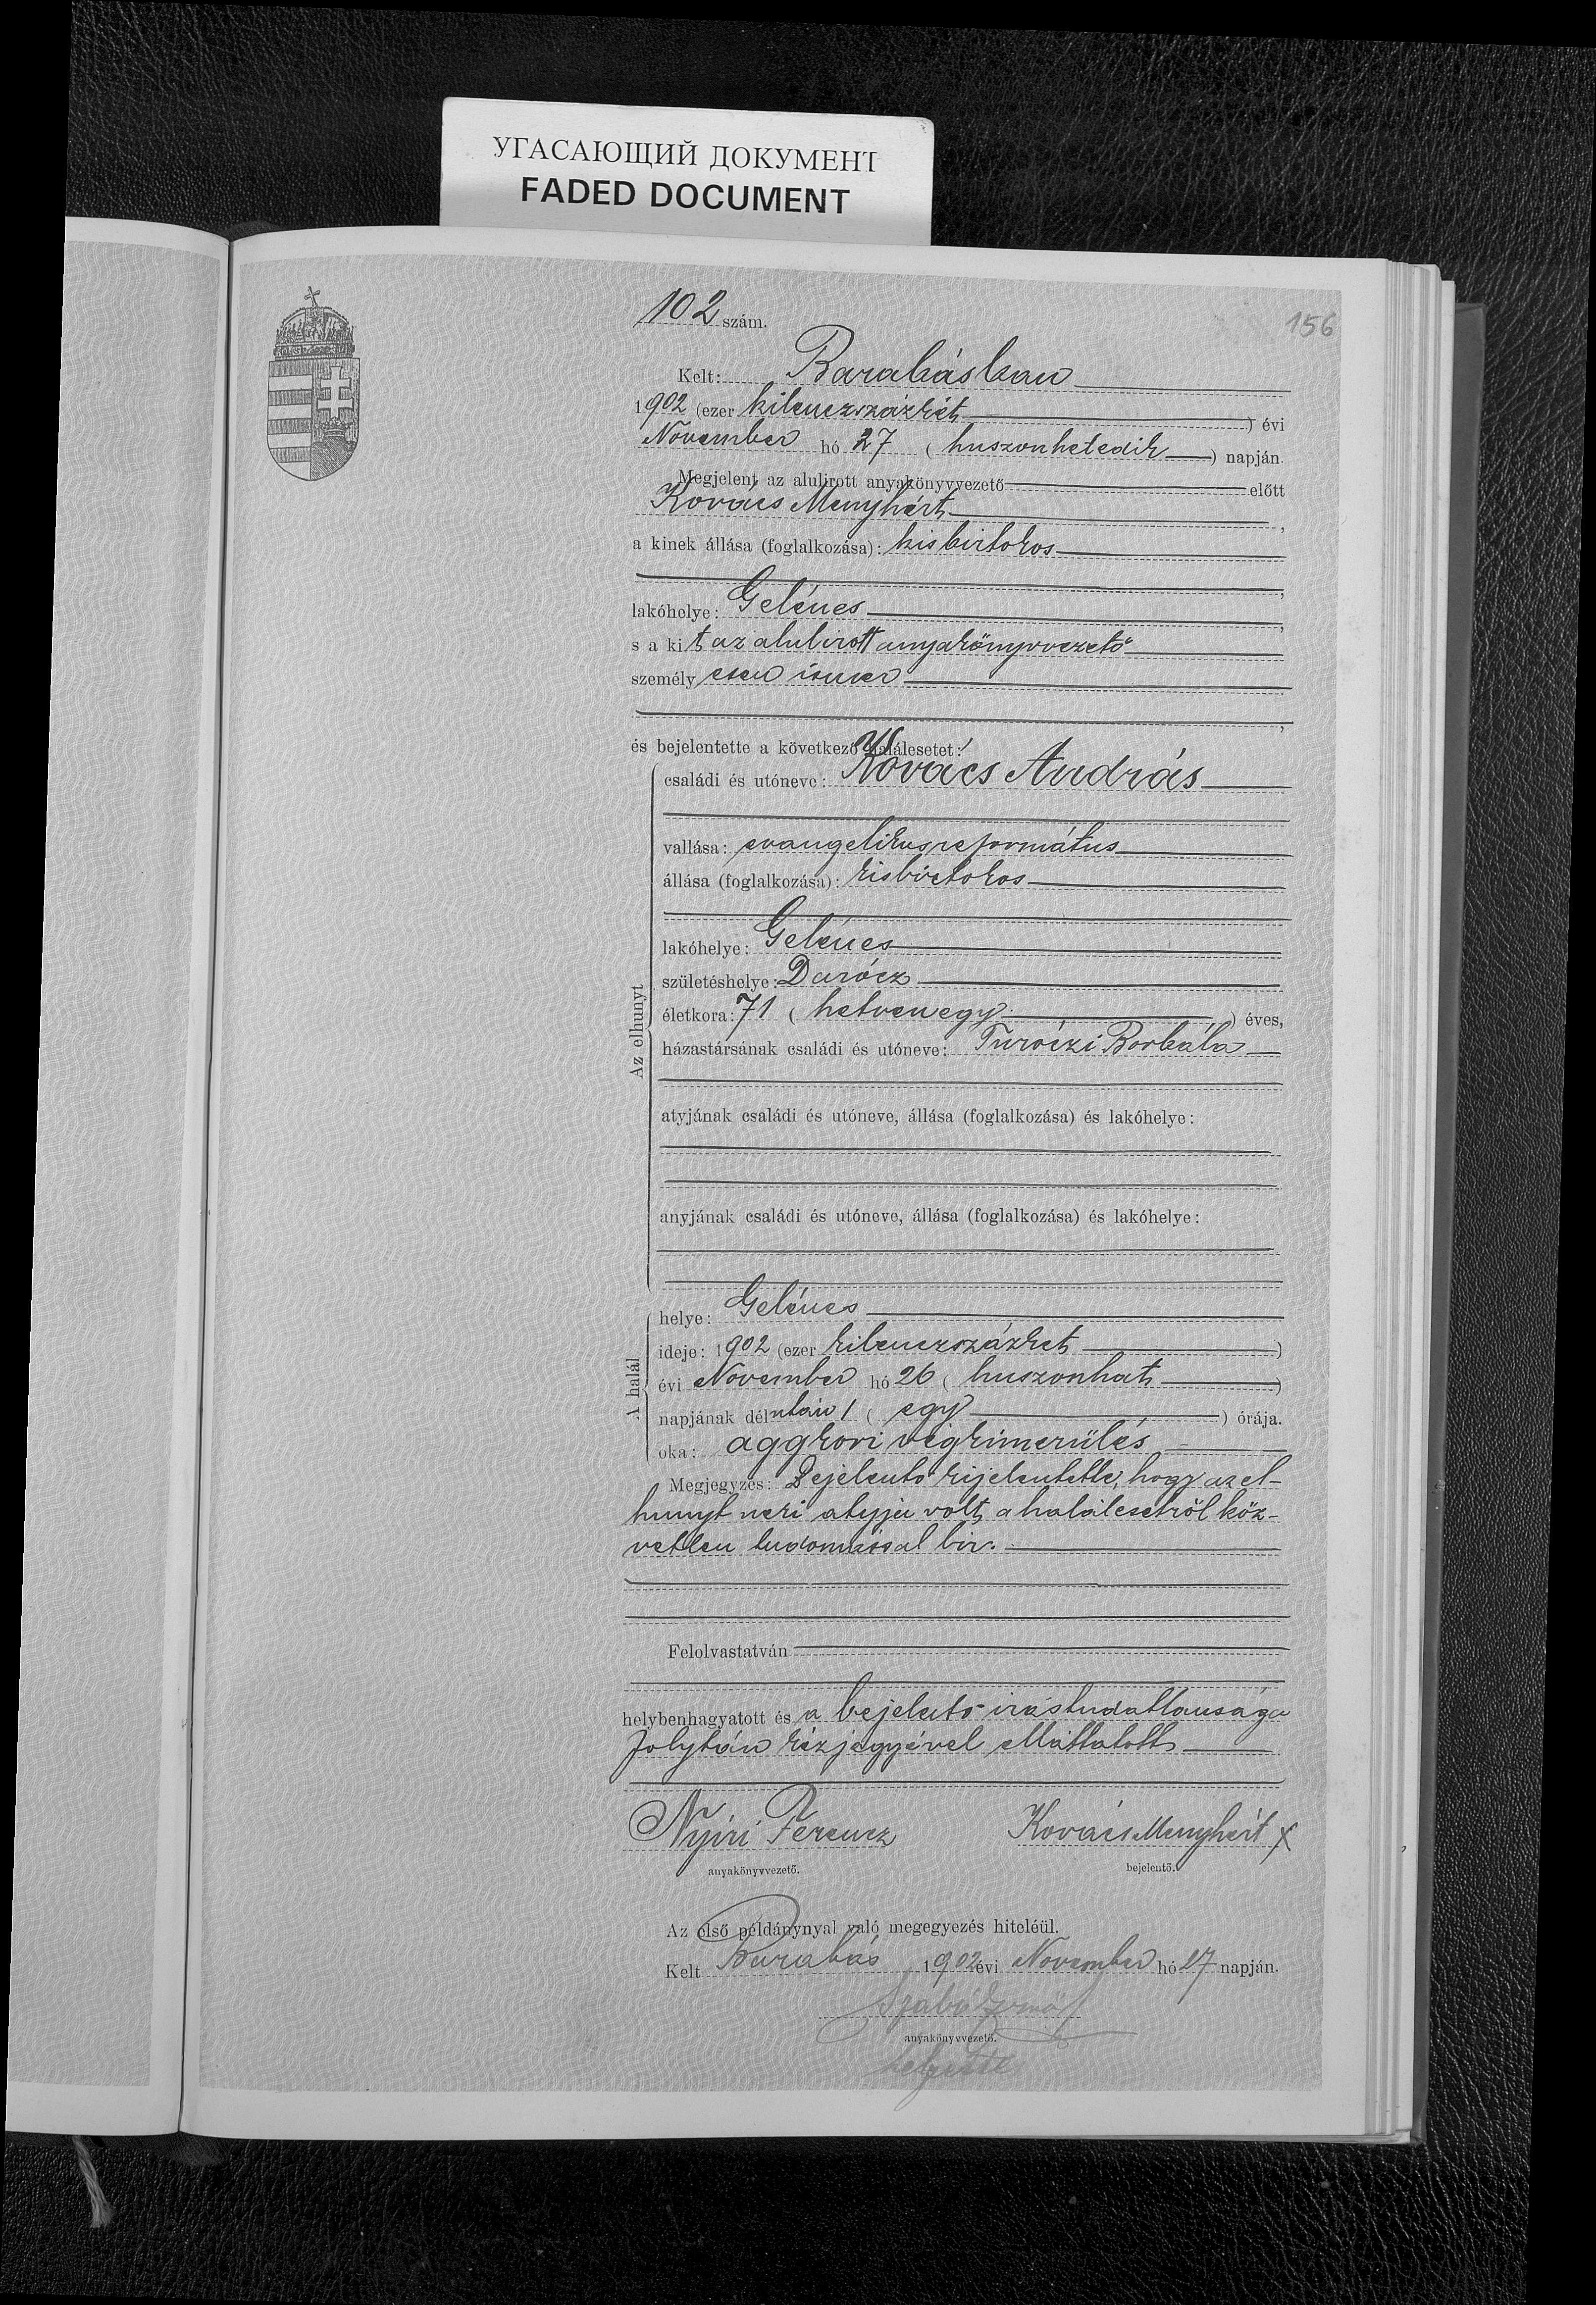 УГАСАЮЩИЙ ДОКУМЕНТ
FADED DOCUMENT
156
102 szám.
Kelt: Barabásban
1902 (ezer kilenczszázkét ) évi
November hó 27 ( huszonhetedik ) napján.
Megjelent az alulirott anyakönyvvezető előtt
Kovács Menyhért ,
a kinek állása (foglalkozása): kisbirtokos
,
lakóhelye: Gelénes ,
s a kit az alulirott anyakönyvvezető
személyesen ismer
,
és bejelentette a következő halálesetet:
Az elhunyt
családi és utóneve: Kovács András
vallása: evangelikus református
állása (foglalkozása): kisbirtokos
lakóhelye: Gelénes
születéshelye: Darócz
életkora: 71 ( hetvenegy ) éves,
házastársának családi és utóneve: Turóczi Borbála
atyjának családi és utóneve, állása (foglalkozása) és lakóhelye:
anyjának családi és utóneve, állása (foglalkozása) és lakóhelye:
A halál
helye: Gelénes
ideje: 1902 (ezer kilenczszázkét )
évi November hó 26 ( huszonhat )
napjának délután 1 ( egy ) órája.
oka: aggkori végkimerülés
Megjegyzés: Bejelentő kijelentette, hogy az el-
hunyt neki atyja volt, a halálesetről köz-
vetlen tudomással bir.
Felolvastatván
helybenhagyatott és a bejelentő irástudatlansága
folytán kézjegyével elláttatott
Nyiri Ferencz Kovács Menyhért X
anyakönyvvezető. bejelentő.
Az első példánynyal való megegyezés hiteléül.
Kelt Barabás 1902 évi November hó 27 napján.
Szabó
anyakönyvvezető.
helyettes